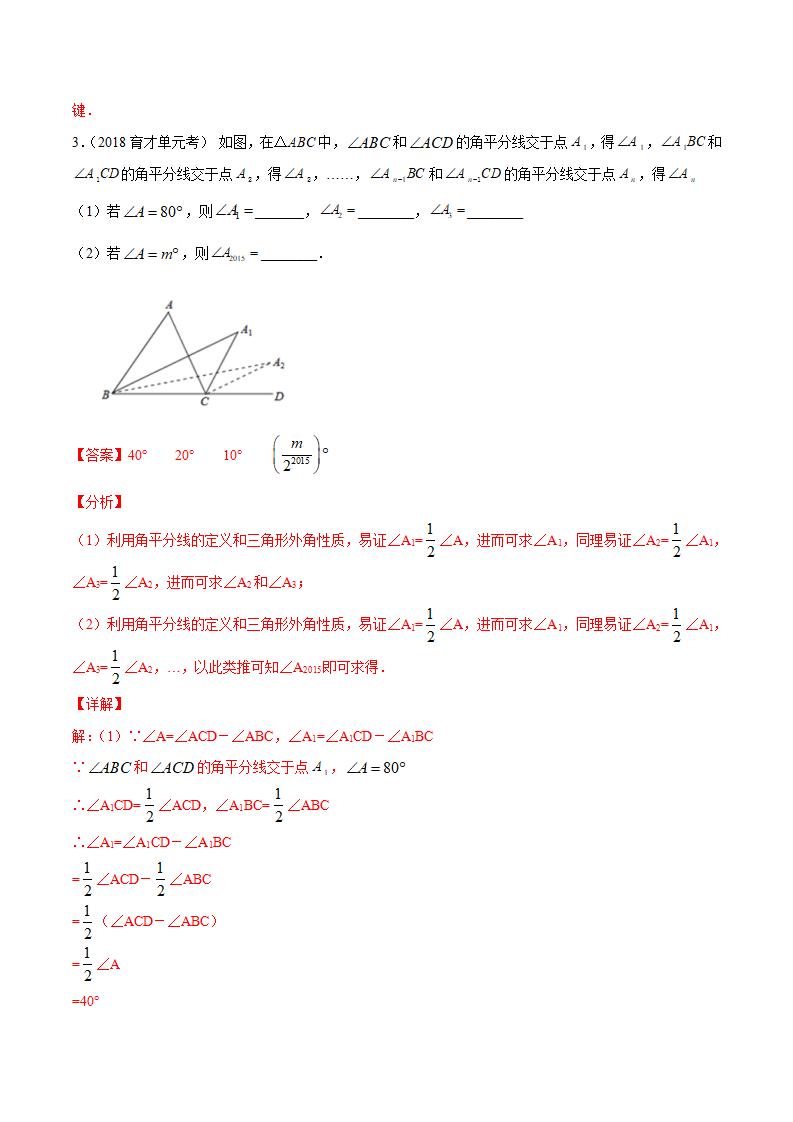 键．
3.（2018育才单元考） 如图，在△ABC中，∠ABC和∠ACD的角平分线交于点A₁，得∠A₁，∠A₁BC和
∠A₁CD的角平分线交于点A₂，得∠A₂，……，∠Aₙ₋₁BC和∠Aₙ₋₁CD的角平分线交于点Aₙ，得∠Aₙ
（1）若∠A = 80°，则∠A₁ = _______，∠A₂ = ________，∠A₃ = ________
（2）若∠A = m°，则∠A₂₀₁₅ = ________．
A
A₁
A₂
B
C
D
【答案】40° 20° 10° (m/2²⁰¹⁵)°
【分析】
（1）利用角平分线的定义和三角形外角性质，易证∠A₁=1/2∠A，进而可求∠A₁，同理易证∠A₂=1/2∠A₁，
∠A₃=1/2∠A₂，进而可求∠A₂和∠A₃；
（2）利用角平分线的定义和三角形外角性质，易证∠A₁=1/2∠A，进而可求∠A₁，同理易证∠A₂=1/2∠A₁，
∠A₃=1/2∠A₂，…，以此类推可知∠A₂₀₁₅即可求得．
【详解】
解：（1）∵∠A=∠ACD－∠ABC，∠A₁=∠A₁CD－∠A₁BC
∵∠ABC和∠ACD的角平分线交于点A₁，∠A = 80°
∴∠A₁CD=1/2∠ACD，∠A₁BC=1/2∠ABC
∴∠A₁=∠A₁CD－∠A₁BC
=1/2∠ACD－1/2∠ABC
=1/2（∠ACD－∠ABC）
=1/2∠A
=40°